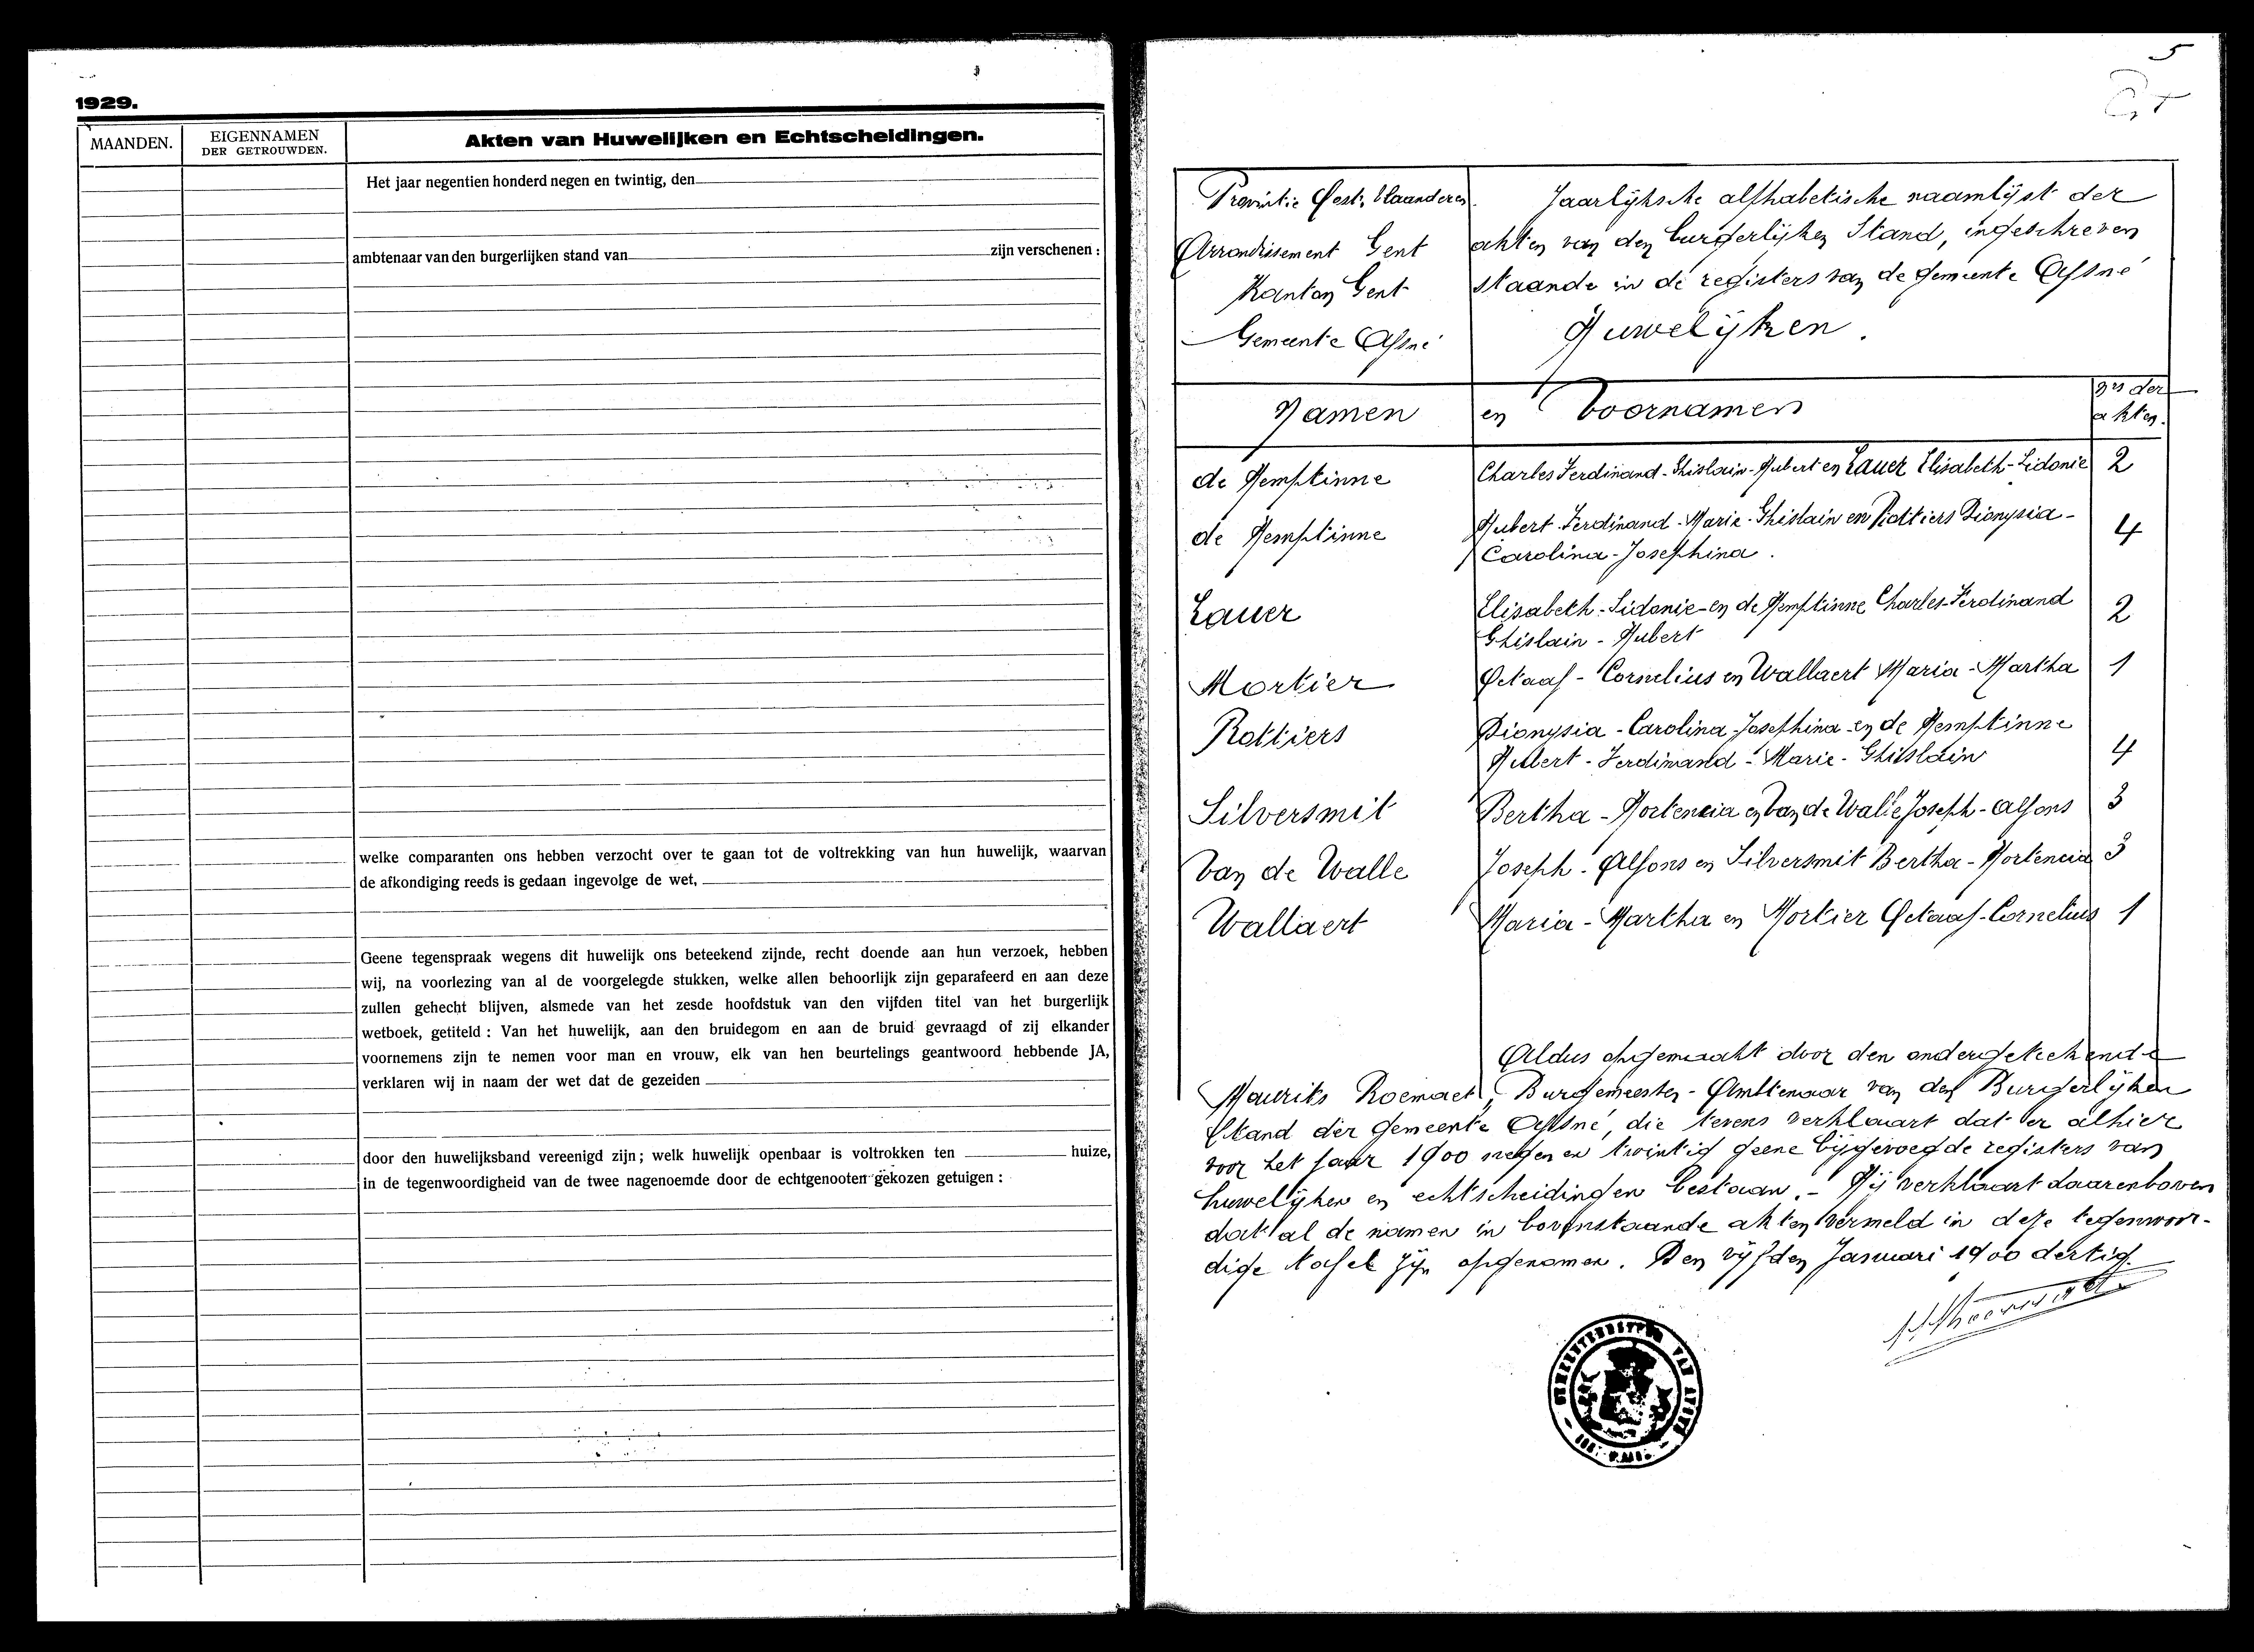 1929.
MAANDEN.
EIGENNAMEN
DER GETROUWDEN.
Akten van Huwelijken en Echtscheidingen.
Het jaar negentien honderd negen en twintig, den
ambtenaar van den burgerlijken stand van zijn verschenen :
welke comparanten ons hebben verzocht over te gaan tot de voltrekking van hun huwelijk, waarvan
de afkondiging reeds is gedaan ingevolge de wet,
Geene tegenspraak wegens dit huwelijk ons beteekend zijnde, recht doende aan hun verzoek, hebben
wij, na voorlezing van al de voorgelegde stukken, welke allen behoorlijk zijn geparafeerd en aan deze
zullen gehecht blijven, alsmede van het zesde hoofdstuk van den vijfden titel van het burgerlijk
wetboek, getiteld : Van het huwelijk, aan den bruidegom en aan de bruid gevraagd of zij elkander
voornemens zijn te nemen voor man en vrouw, elk van hen beurtelings geantwoord hebbende JA,
verklaren wij in naam der wet dat de gezeiden
door den huwelijksband vereenigd zijn ; welk huwelijk openbaar is voltrokken ten huize,
in de tegenwoordigheid van de twee nagenoemde door de echtgenooten gekozen getuigen :
5
Provintie Oost-Vlaanderen
Arrondissement Gent
Kanton Gent
Gemeente Afsné
Jaarlijksche alfhabetische naamlijst der
akten van den burgerlijken Stand, ingeschreven
staande in de registers van de gemeente Afsné
Huwelijken.
Namen en Voornamen nrs der
akten.
de Hemptinne Charles Ferdinand-Ghislain-Hubert en Lauer Elisabeth-Sidonie 2
de Hemptinne Hubert-Ferdinand-Marie-Ghislain en Rottiers Dionysia-
Carolina-Josephina. 4
Lauer Elisabeth-Sidonie en de Hemptinne Charles-Ferdinand
Ghislain-Hubert 2
Mortier Octaaf-Cornelius en Wallaert Maria-Martha 1
Rottiers Dionysia-Carolina-Josephina en de Hemptinne
Hubert-Ferdinand-Marie-Ghislain 4
Silversmit Bertha-Hortencia en Van de Walle Joseph-Alfons 3
Van de Walle Joseph-Alfons en Silversmit Bertha-Hortencia 3
Wallaert Maria-Martha en Mortier Octaaf-Cornelius 1
Aldus opgemaakt door den ondergeteekende
Maurits Roemaet, Burgemeester-Ambtenaar van den Burgerlijken
Stand der gemeente Afsné, die tevens verklaart dat er alhier
voor het jaar 1900 negen en twintig geene bijgevoegde registers van
huwelijken en echtscheidingen bestaan.- Hij verklaart daarenboven
dat al de namen in bovenstaande akten vermeld in deze tegenwoor-
dige tafel zijn opgenomen. Den vijfden Januari 1900 dertig.